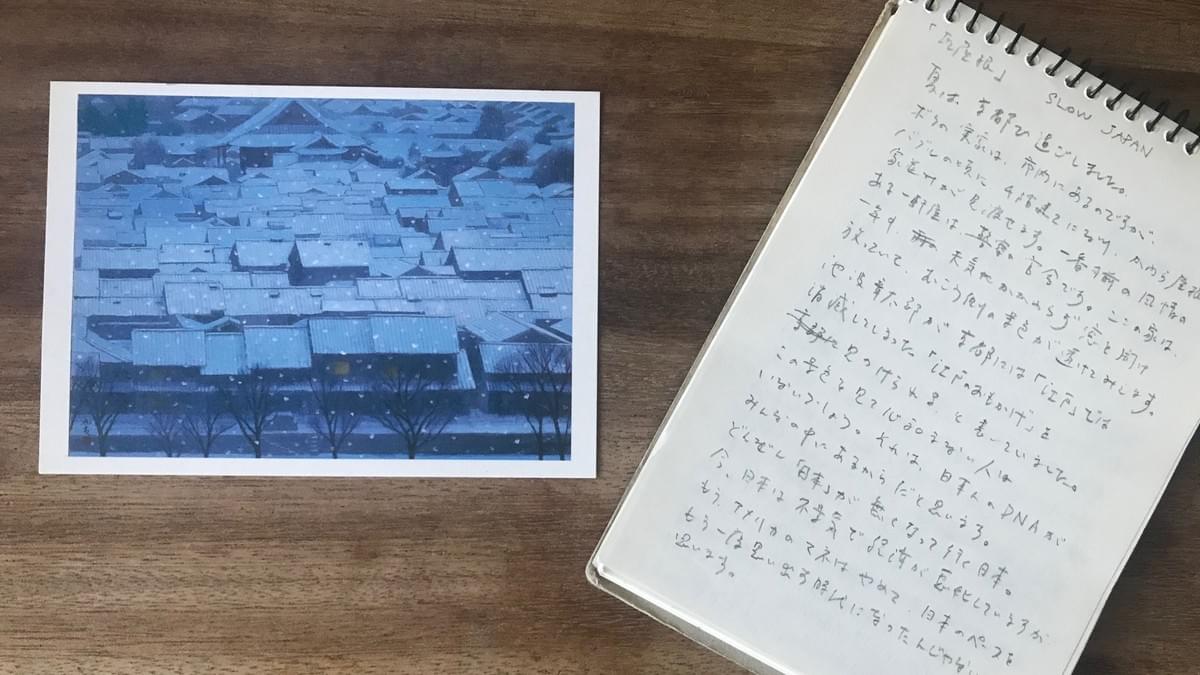 「瓦屋根」
SLOW JAPAN
夏は、京都で過ごしました。
ボクの実家は、市内にあるのですが、
バブルの頃に4階建てになり、かわら屋根の
家並みが見渡せます。一番の風情の
ある一軒屋は、の古舎です。ここの家は、
一年中、天気にかかわらず窓を開け
放していて、むこう側の景色が透けてみえます。
池波正太郎が京都には「江戸」では
消滅してしまった「江戸のおもかげ」を
見つけられる、と書いていました。
この景色を見て心おちつかない人は
いないでしょう。それは、日本人のDNAが
みんなの中にあるからだと思います。
どんどん「日本」が無くなって行く日本。
今、日本は不景気で経済が悪化していますが
もう、アメリカのマネはやめて、日本のペースを
もう一度思い出す時代になったんじゃない
思います。